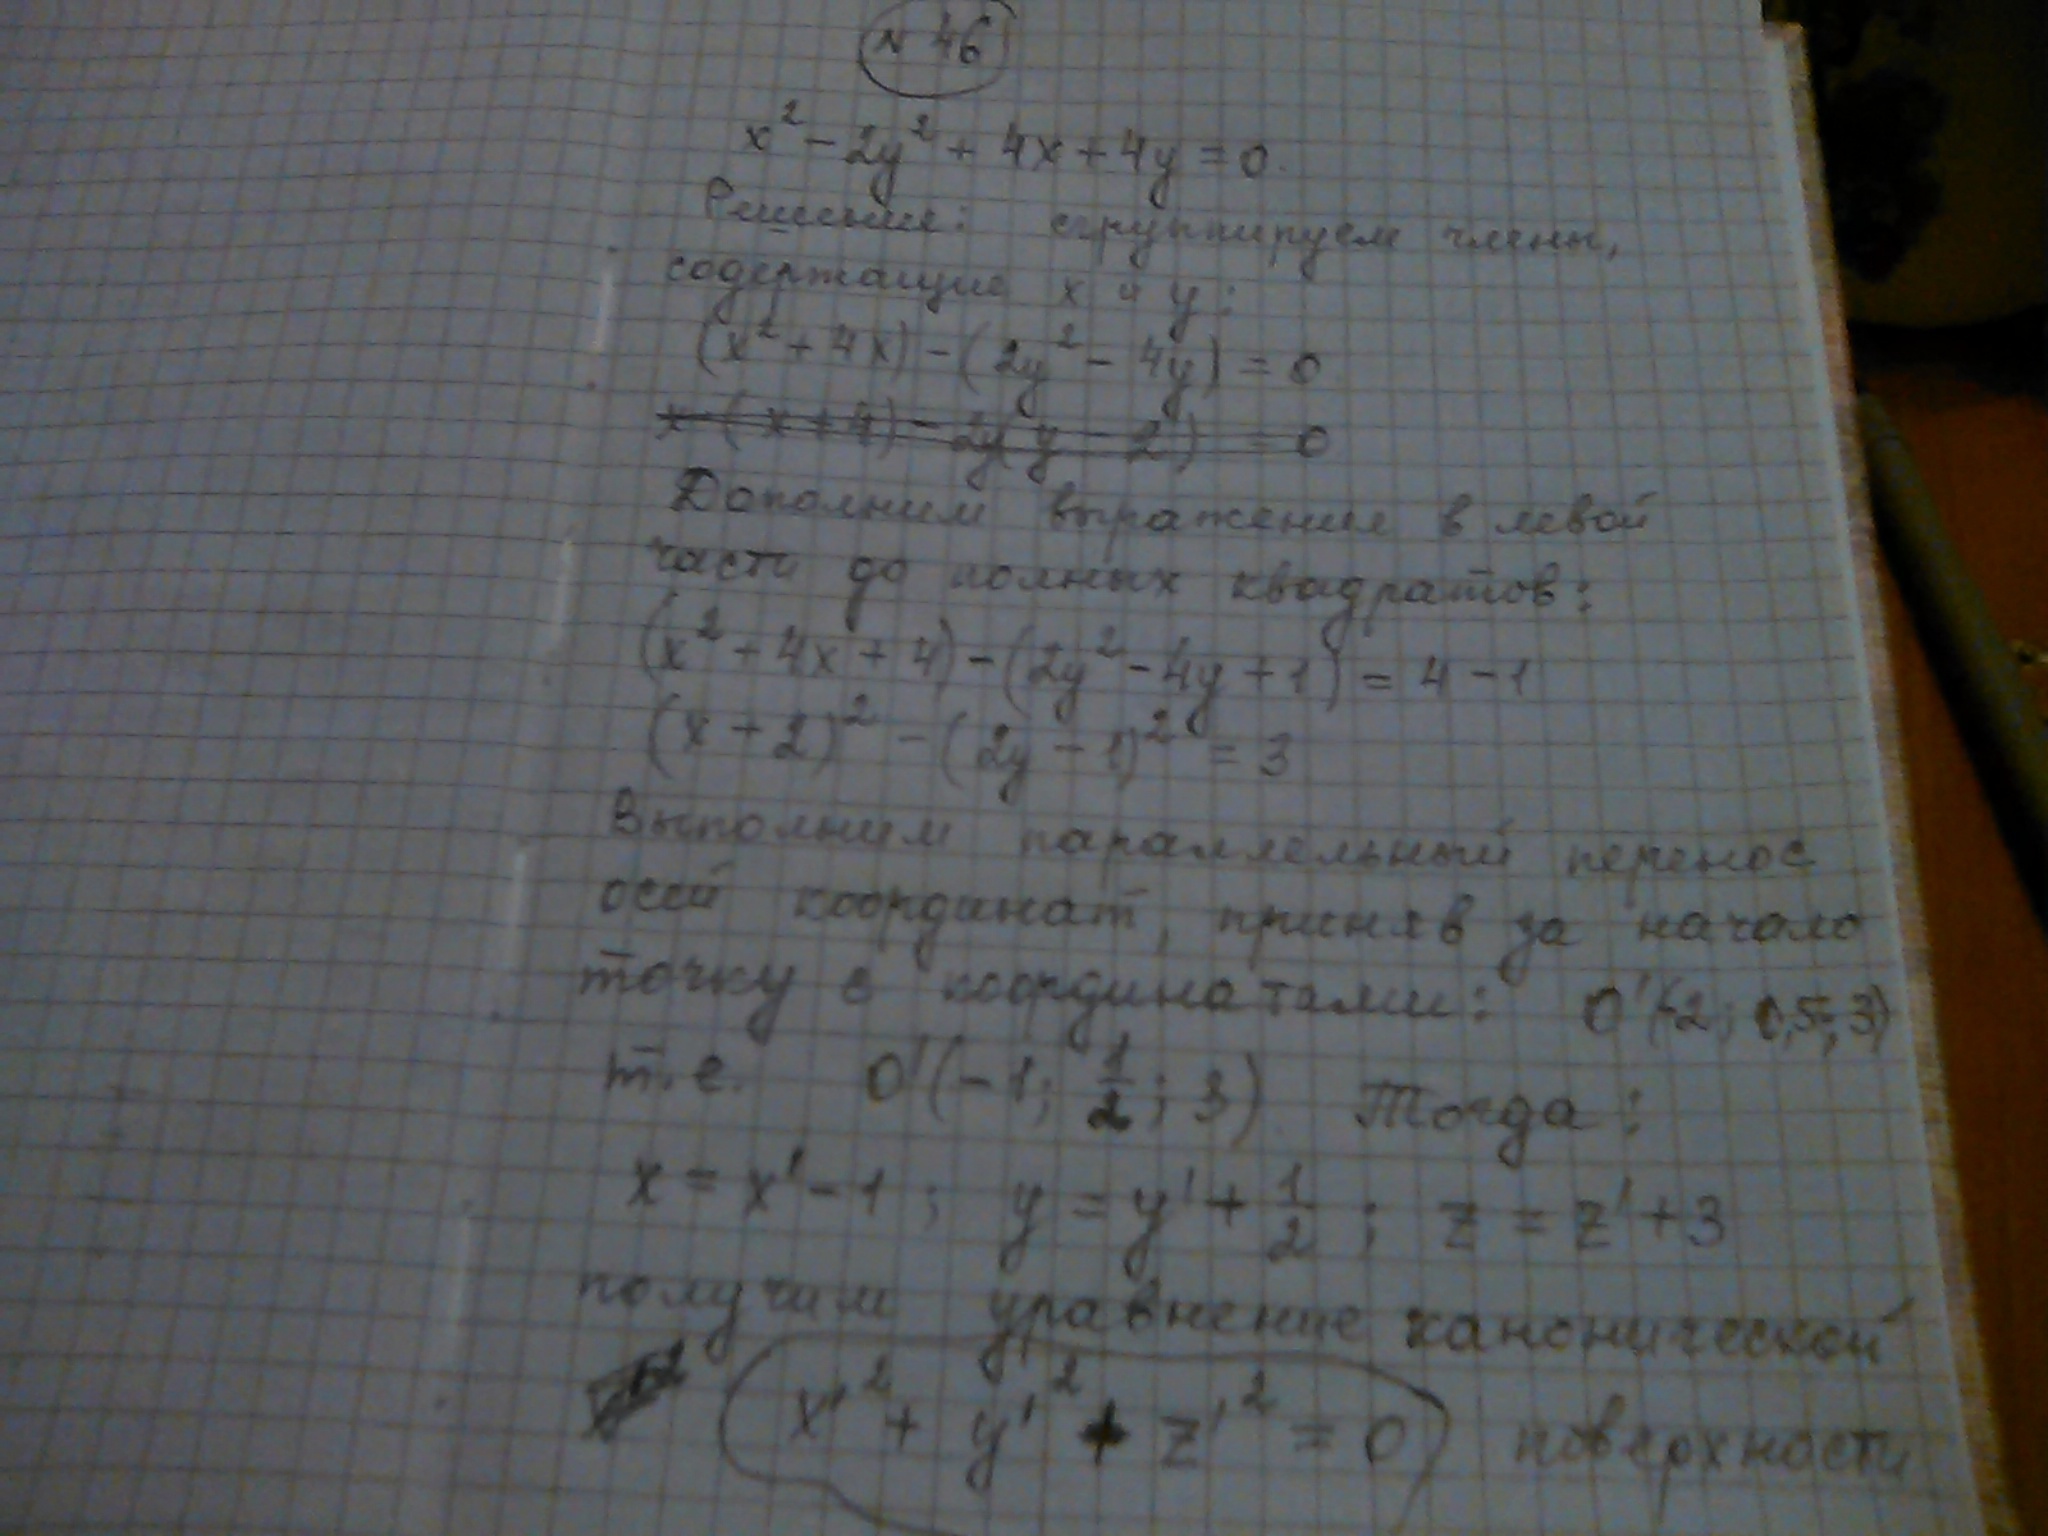 N 46
x² - 2y² + 4x + 4y = 0.
Решение: сгруппируем члены,
содержащие x и y:
(x² + 4x) - (2y² - 4y) = 0
x (x + 4) - 2y(y - 2) = 0
Дополним выражение в левой
части до полных квадратов:
(x² + 4x + 4) - (2y² - 4y + 1) = 4 - 1
(x + 2)² - (2y - 1)² = 3
Выполним параллельный перенос
осей координат, приняв за начало
точку с координатами: O'(-2; 0,5; 3)
т.е. O'(-1; 1/2; 3) Тогда:
x = x' - 1; y = y' + 1/2; z = z' + 3
получим уравнение канонической
x'² + y'² + z'² = 0 поверхности